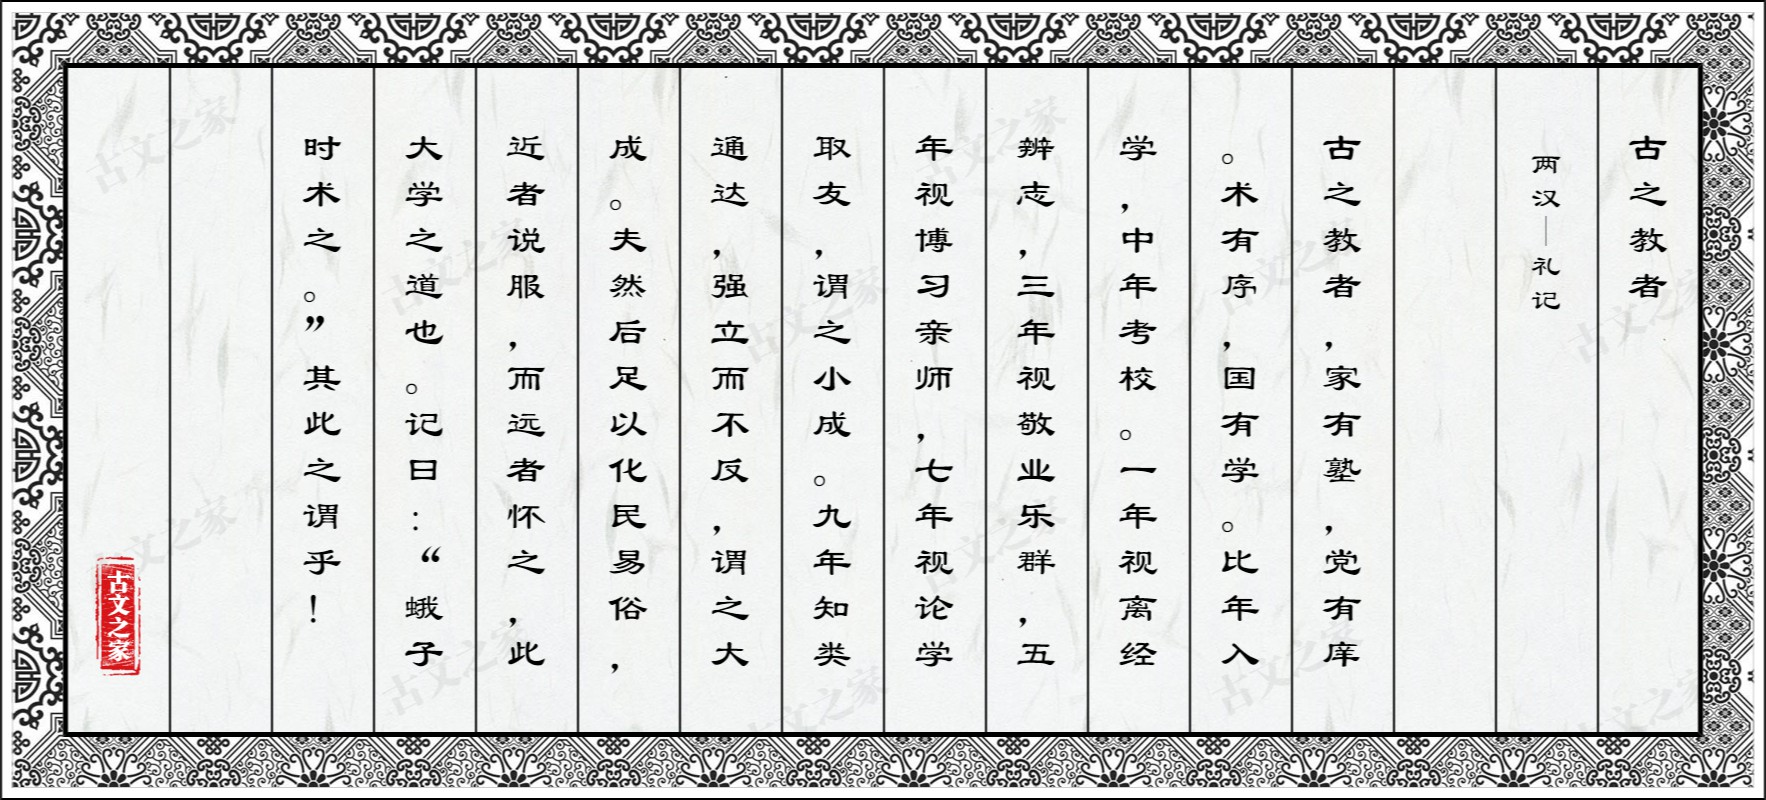 古之教者
两汉—礼记
古之教者，家有塾，党有庠
。术有序，国有学。比年入
学，中年考校。一年视离经
辨志，三年视敬业乐群，五
年视博习亲师，七年视论学
取友，谓之小成。九年知类
通达，强立而不反，谓之大
成。夫然后足以化民易俗，
近者说服，而远者怀之，此
大学之道也。记曰：“蛾子
时术之。”其此之谓乎！
古文之家